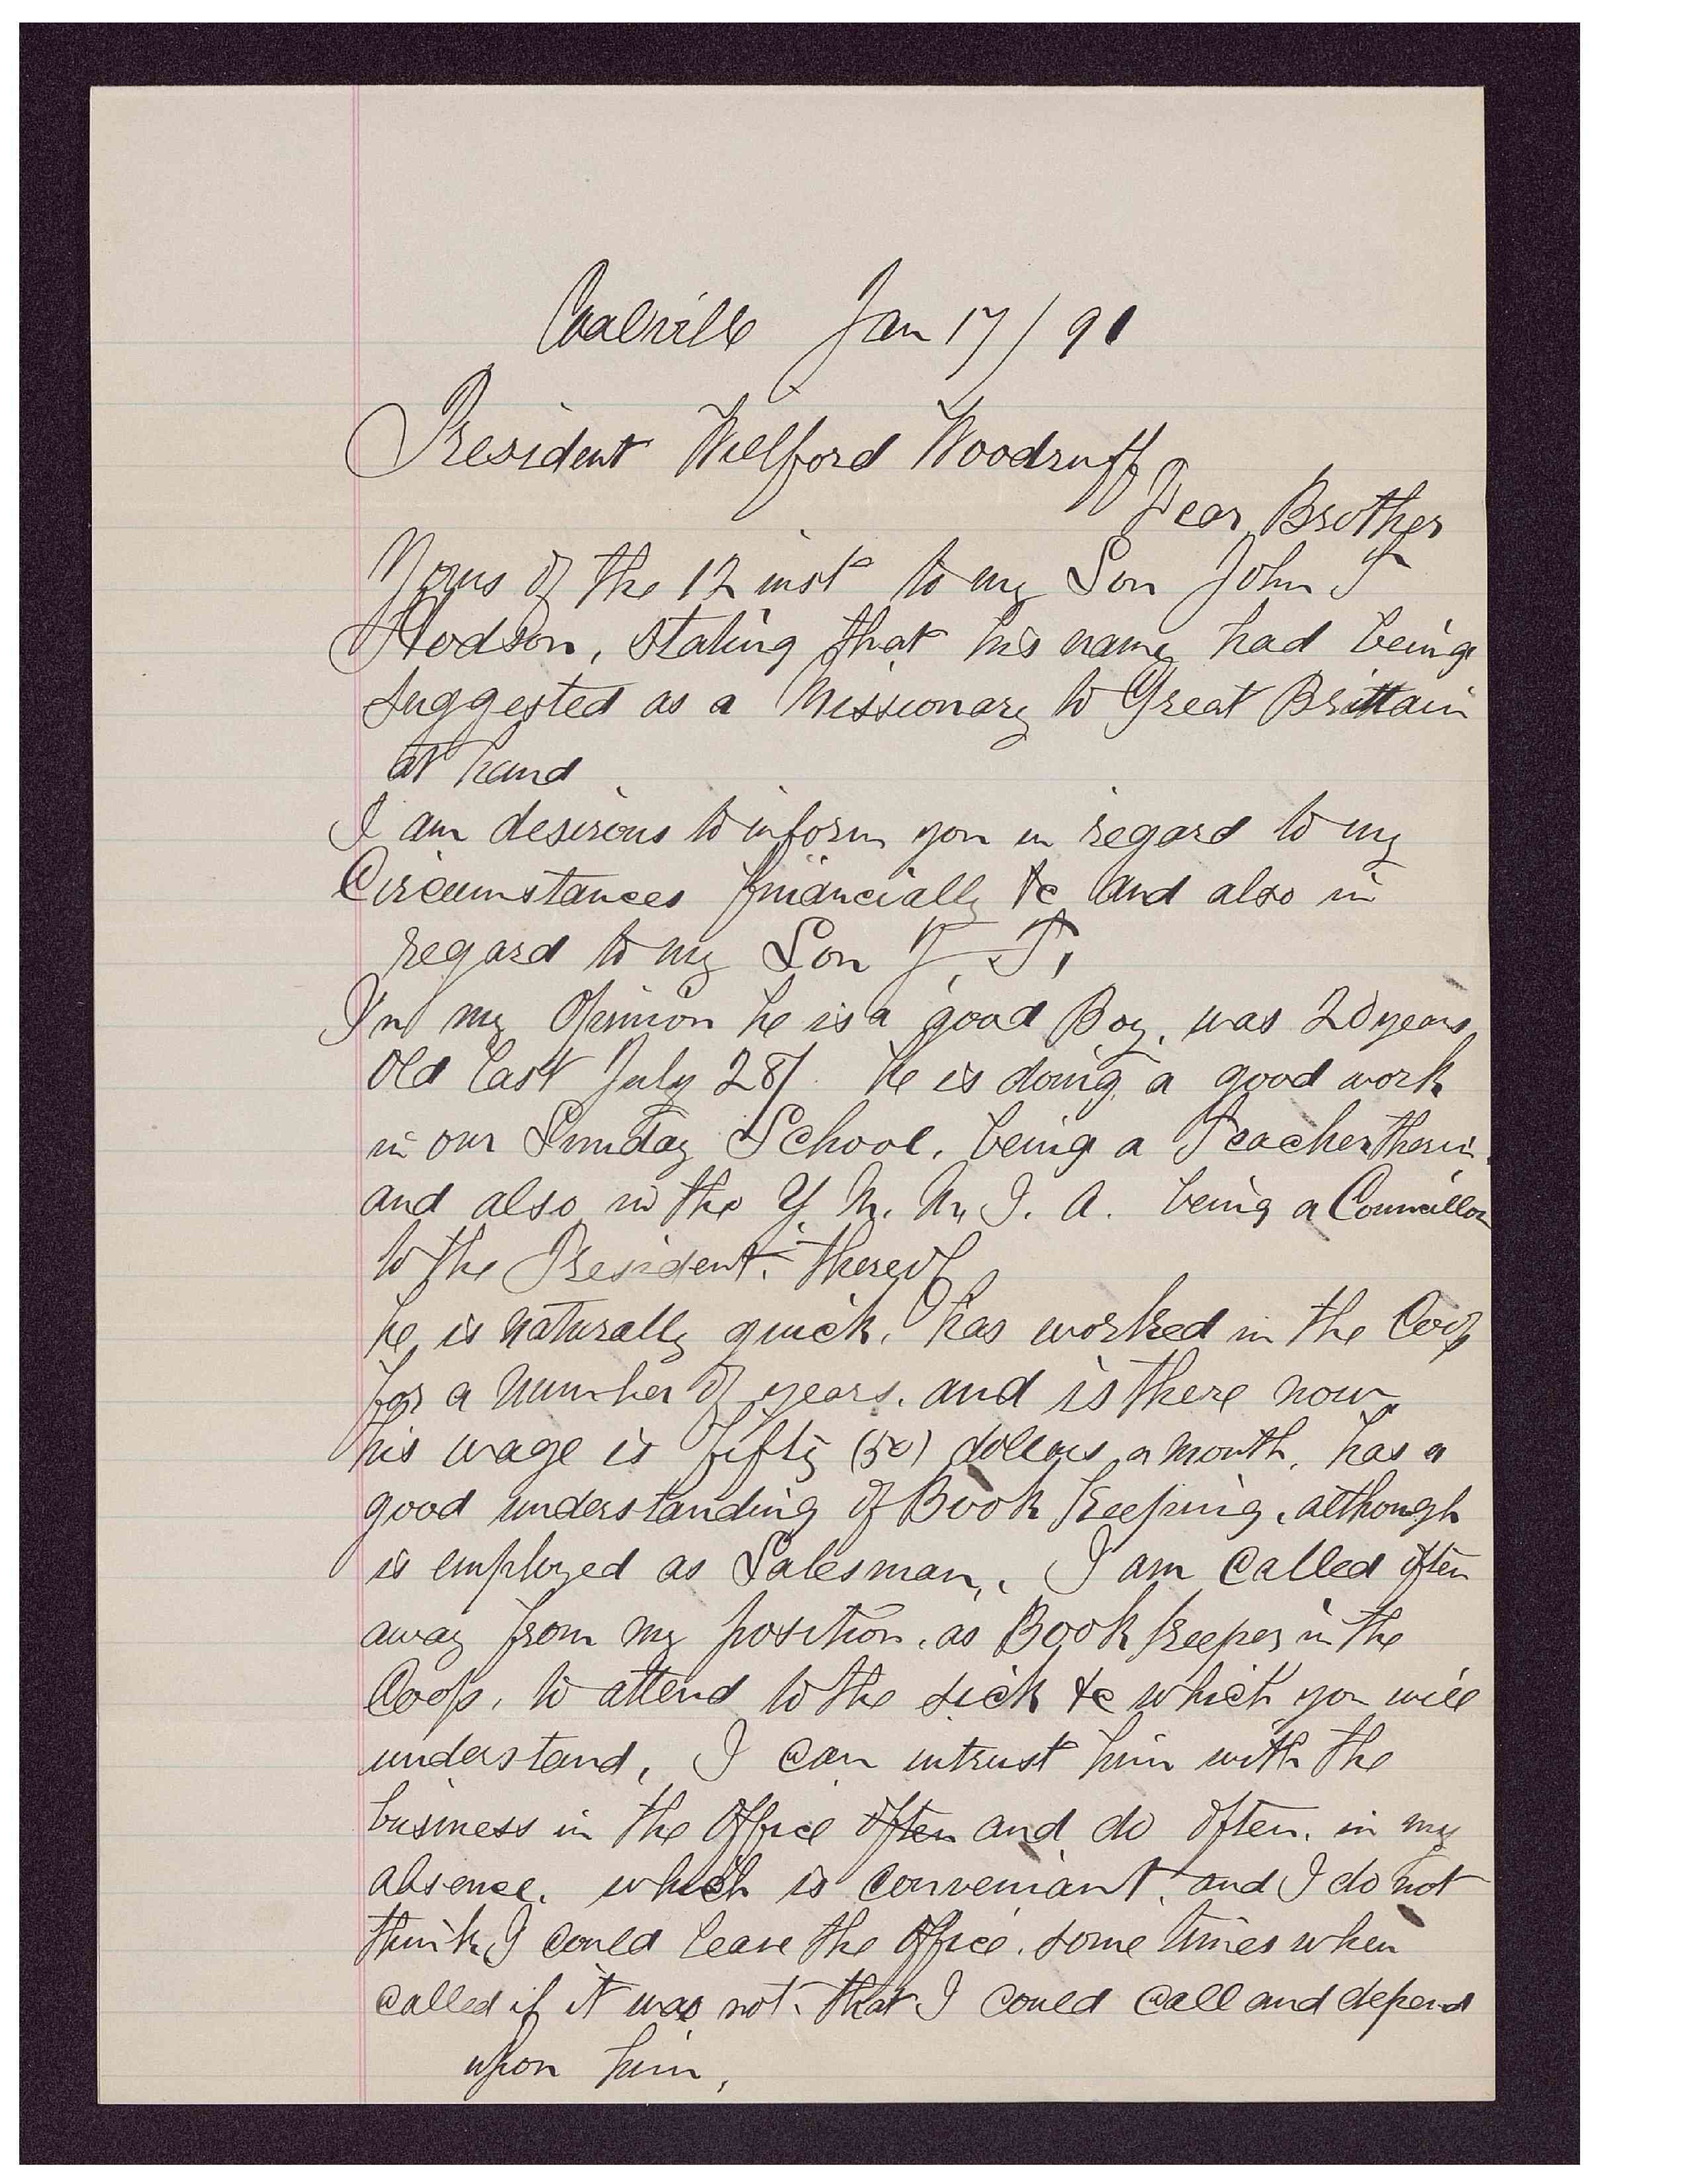 Coalville Jan 17/91
President Wilford Woodruff
Dear Brother
Yours of the 12 inst to my Son John T
Hodson, stating that his name had being
suggested as a Missionary to Great Brittain
at hand
I am desirous to inform you in regard to my
Circumstances financially &c and also in
regard to my Son J. T.
In my Opinion he is a good Boy, was 20 years
old last July 28/. he is doing a good work
in our Sunday School, being a Teacher therin.
and also in the Y. M. M. I. A. being a Councillor
to the President. thereof
he is naturally quick, has worked in the Coop
for a Number of years. and is there now.
his wage is fifty (50) dollars a month, has a
good understanding of Book Keeping, although
is employed as Salesman,. I am called often
away from my position. as Book keeper in the
Coop, to attend to the sick &c which you will
understand, I can intrust him with the
business in the Office often and do often. in my
absence. which is conveniant. and I do not
think I could leave the Office. some times when
called if it was not. that I could call and depend
upon him,